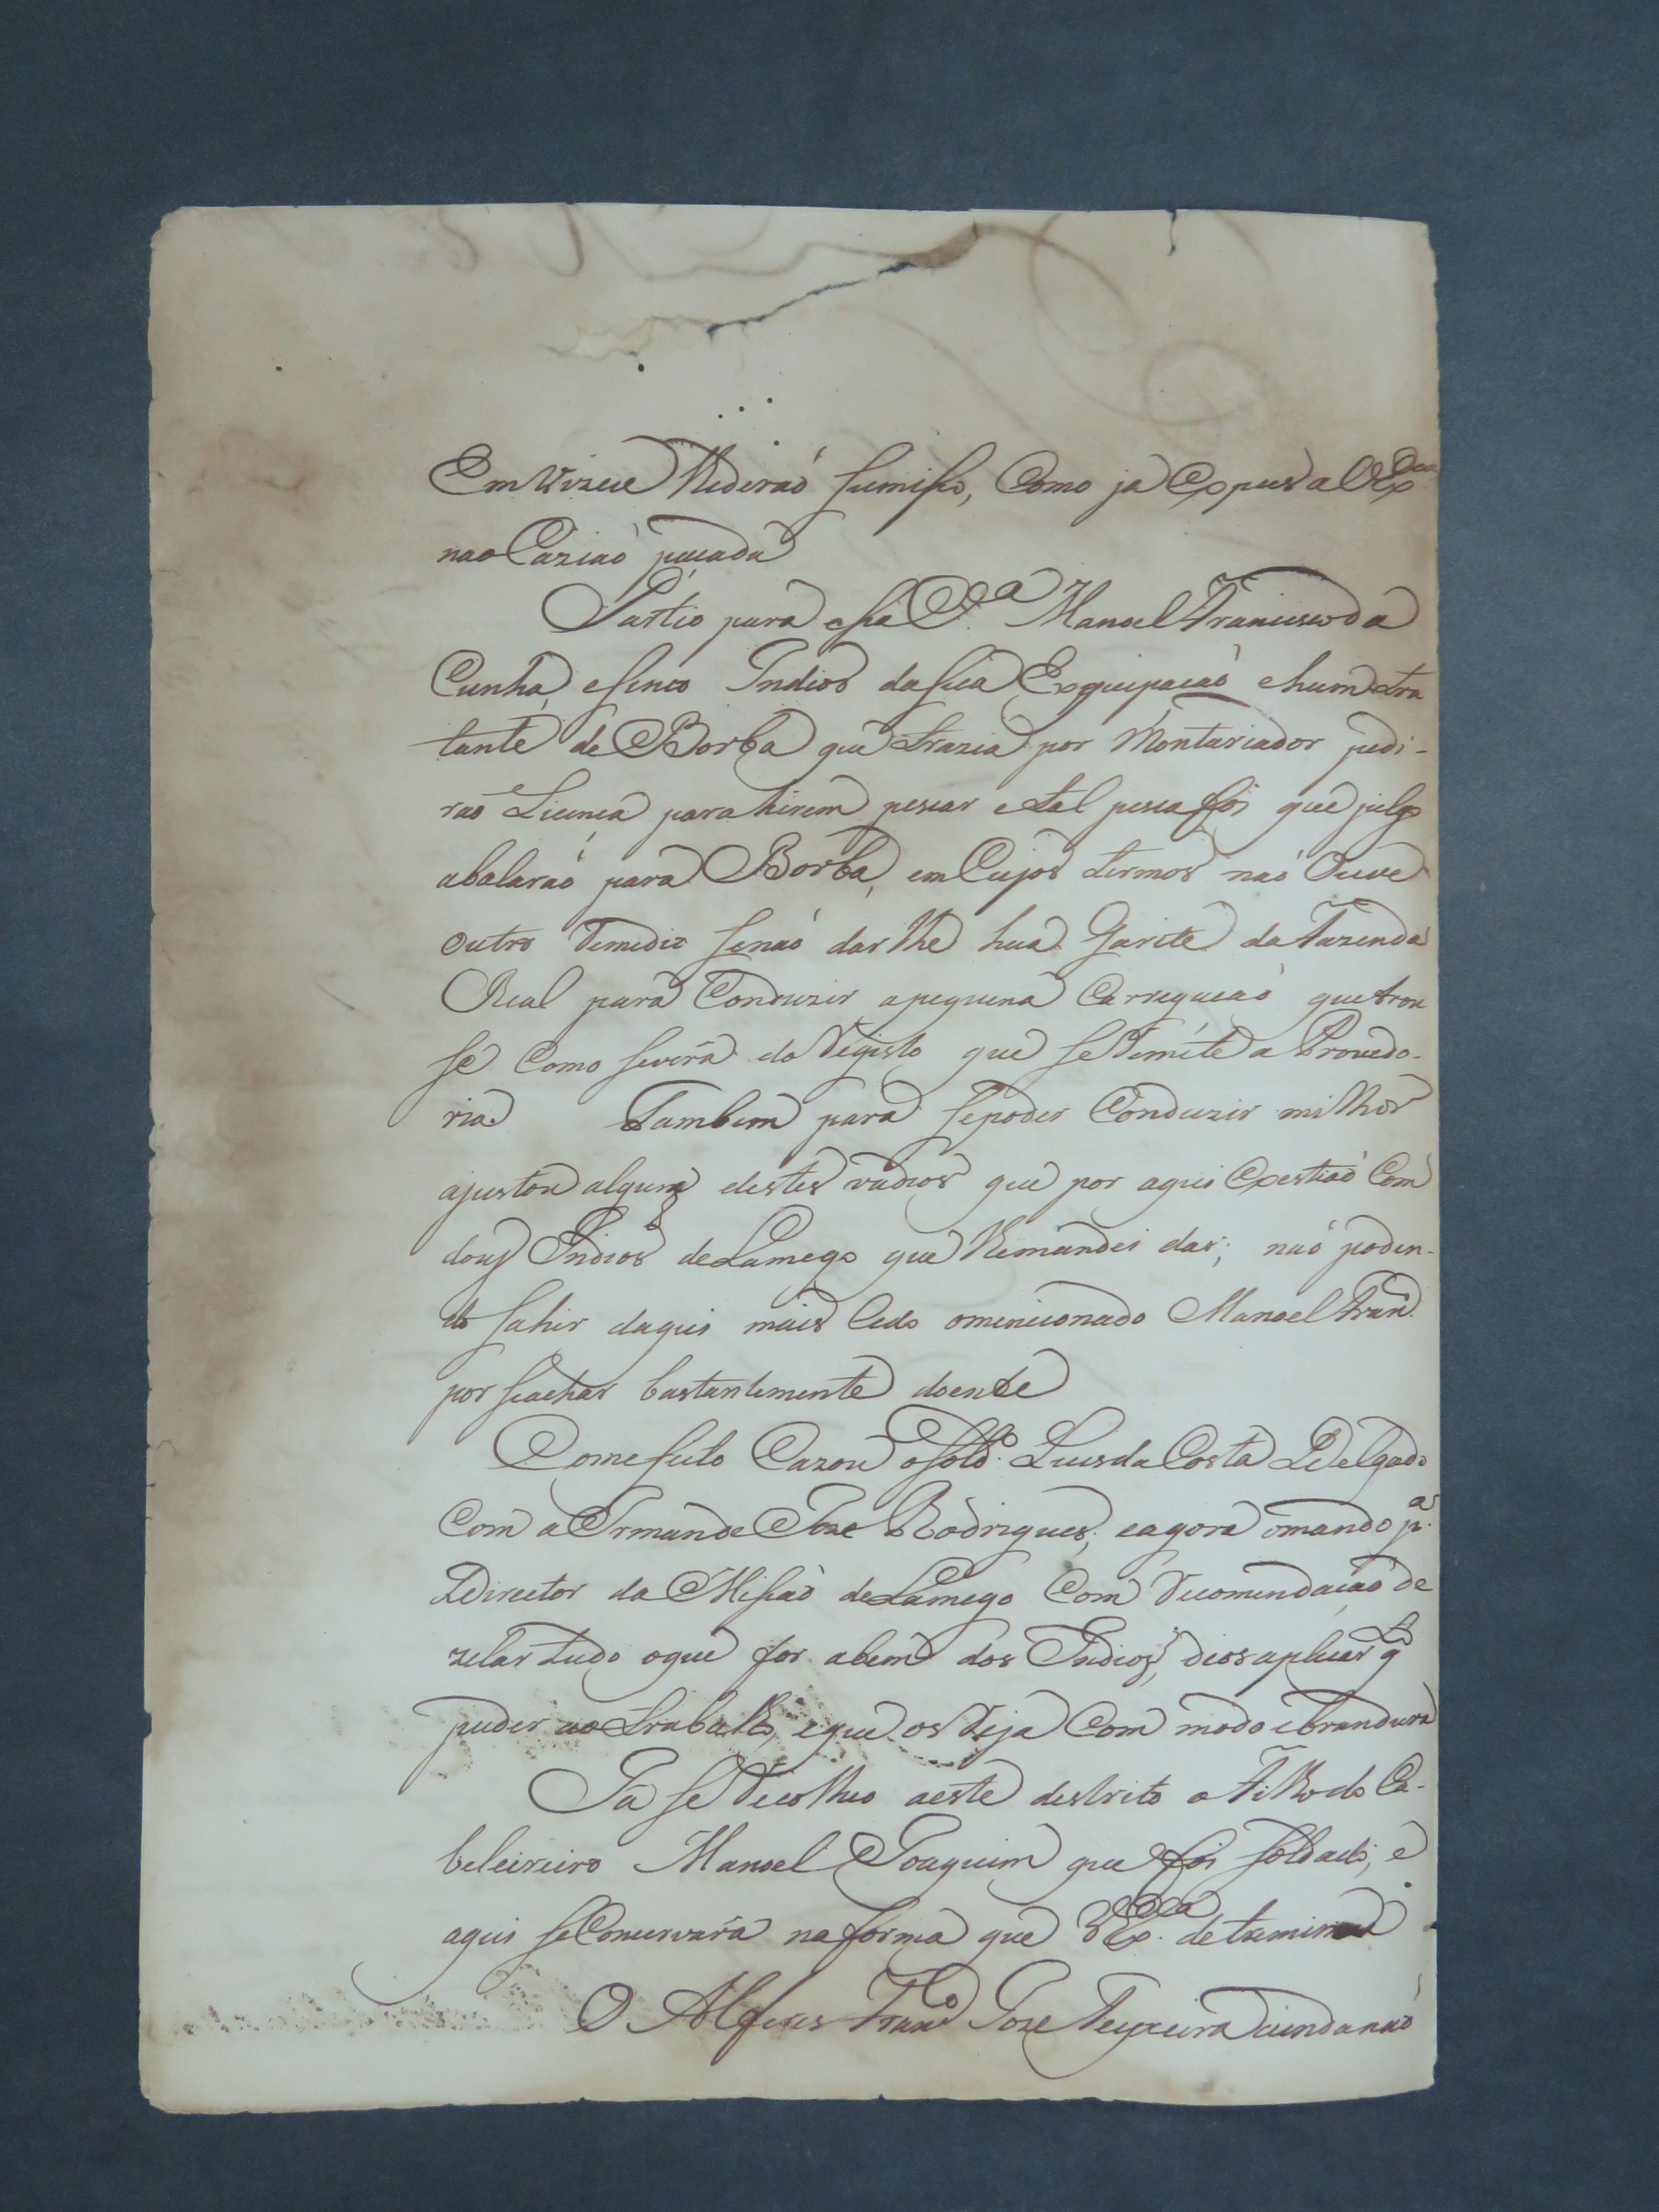 Em Vizeu lhe derao sumisso, Como ja Expus a V Ex.cia
na o Caziaó pacada
Partio para essa C.e Manoel Francisco da
Cunha, e sinco Indios da sua Exquipaçaó e hum tra
tante de Borba que trazia por Montariador pedi-
raó Licença para hirem pescar e tal pesca foi que julgo
abalaraó para Borba, em Cujos termos naó Ouve
outro remedio senaó dar lhe hua Garite da Fazenda
Real para Conduzir a pequena Carregaçaó que trou
se Como severá do registo que se remete a Provedo-
ria Tambem para se poder Conduzir milhor
ajustou alguns destes vadios que por aqui Exestiaó Com
dous Indios de Lamego que lhe mandei dar; naó poden-
do sahir daqui mais Cedo o mencionado Manoel Fran.
por se achar bastantemente doente
Com efeito Cazou o sold.o Luis da Costa Delgado
Com a Irman de Joze Rodrigues, e agora o mando p.a
Director da Missaó de Lamego Com recomendaçaó de
zelar tudo o que for a bem dos Indios, e os aplicar q.to
puder ao trabalho, e que os reja Com modo e brandura
Ja se recolheo a este destrito o Filho do Ca-
beleireiro Manoel Joaquim que foi soldado, e
aqui se Conservará na forma que V Ex.cia detremina
O Alferes Fran.co Joze Teixeira ainda naó